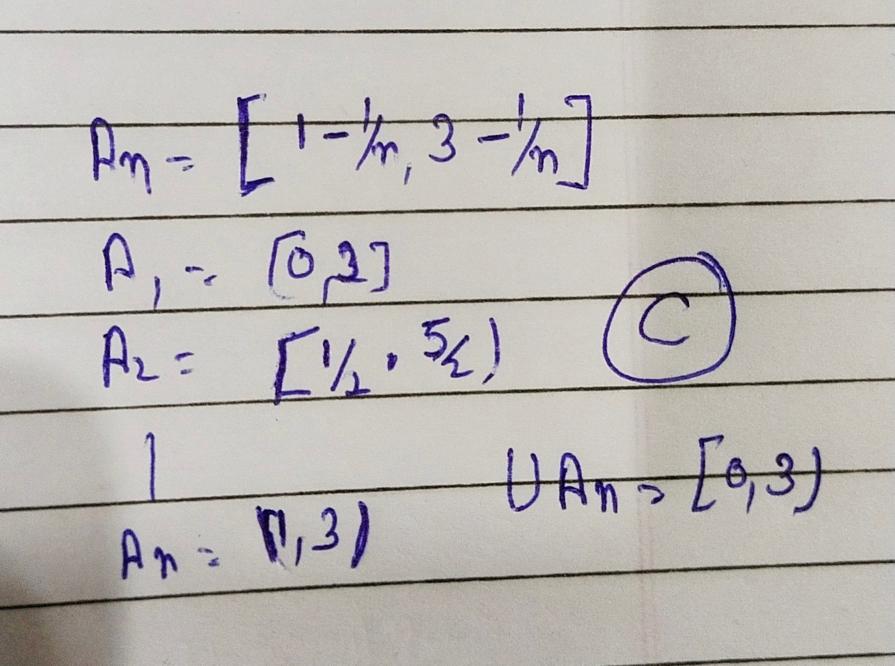 An = [1 - 1/n, 3 - 1/n]
A1 = [0, 2]
A2 = [1/2, 5/2)
C
|
UAn = [0,3)
An = [1,3)